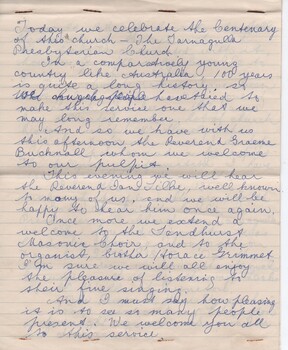 Today we celebrate the Centenary
of this church - The Tarnagulla
Presbyterian Church
In a comparatively young
country like Australia, 100 years
is quite a long history. so
have tried to
make this service one that we
may long remember.
And so we have with us
this afternoon the Reverend Graeme
Bushnell whom we welcome
to our pulpit.
This evening we will hear
the Reverend Ian, well known
to many of us, and we will be
happy to hear him once again.
Once more we extend a
welcome to the Sandhurst
Masonic Choir, and to the
organist, Horace Grimmet
I'm sure we will all enjoy
the pleasure of listening to
their fine singing.
And I must say how pleasing
it is to see so many people
present. We welcome you all
to this service